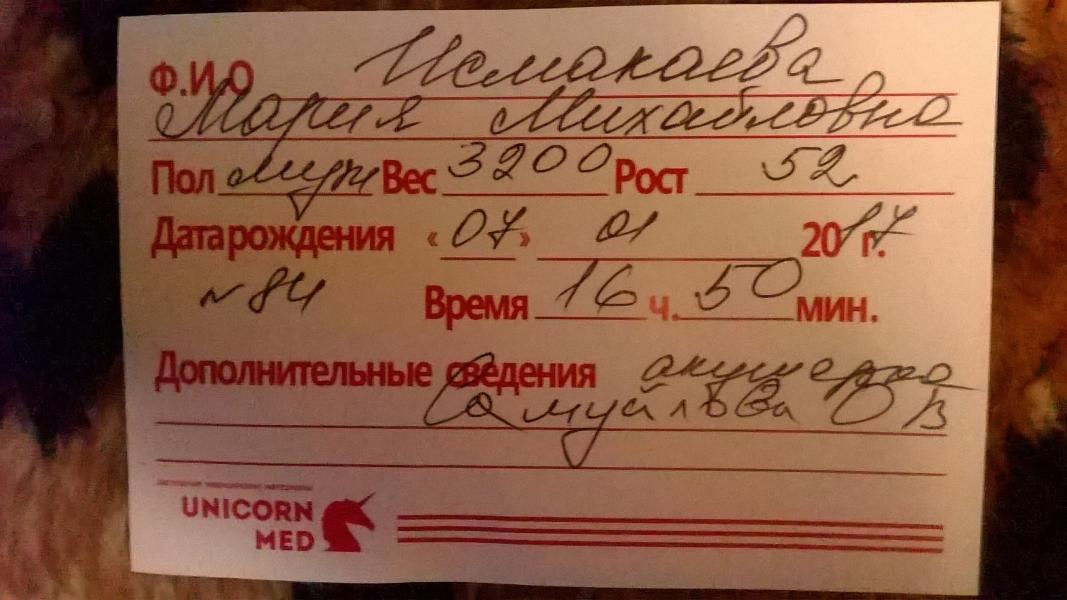 Ф.И.О Исмакаева
Мария Михайловна
Пол муж Вес 3200 Рост 52
Дата рождения «07» 01 2017 г.
№ 84 Время 16 ч. 50 мин.
Дополнительные сведения акушерка
Самуйлова О В
UNICORN
MED